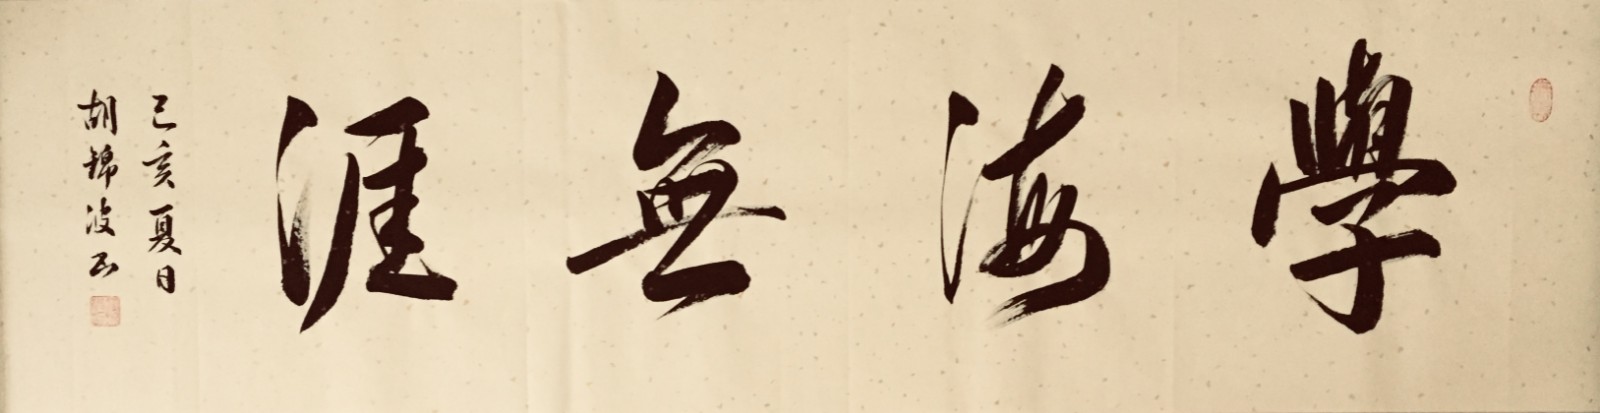 學海無涯
己亥夏日
胡錦波书